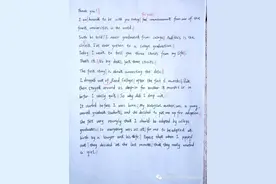 Thank you! |
I am honored to be with you today for your commencement from one of the
finest universities in the world. |
Truth be told / I never graduated from college / and this is the
closest I've ever gotten to a college graduation. |
Today I want to tell you three stories from my life. |
That's it. / No big deal. Just three stories. |
The first story is about connecting the dots. |
I dropped out of Reed College / after the first 6 months / but
then stayed around as a drop-in for another 18 months or so
before I really quit. / So why did I drop out. |
It started before I was born. / My biological mother was a young
unwed graduate student, and she decided to put me up for adoption.
She felt very strongly that I should be adopted by college
graduates / so everything was all set for me to be adopted at
birth by a lawyer and his wife. / Except that when I popped
out / they decided at the last minute / that they really wanted
a girl. |